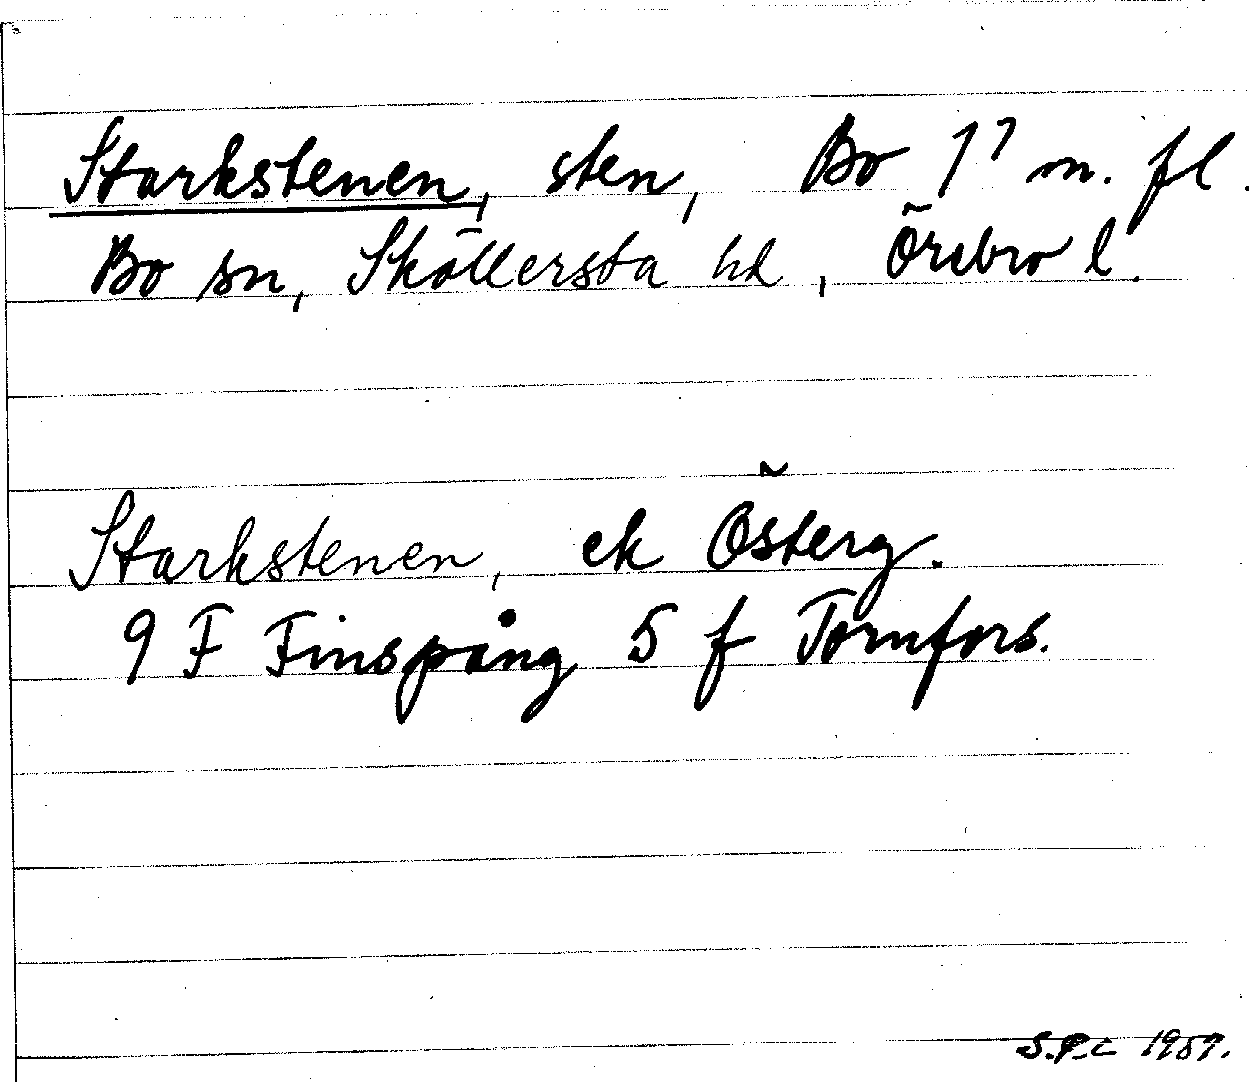 Starkstenen, sten, Bo 1⁷ m. fl.
Bo sn, Sköllersta hd, Örebro l.
Starkstenen, ek Österg.
9 F Finspång 5 f Tornfors.
S.P.C 1957.